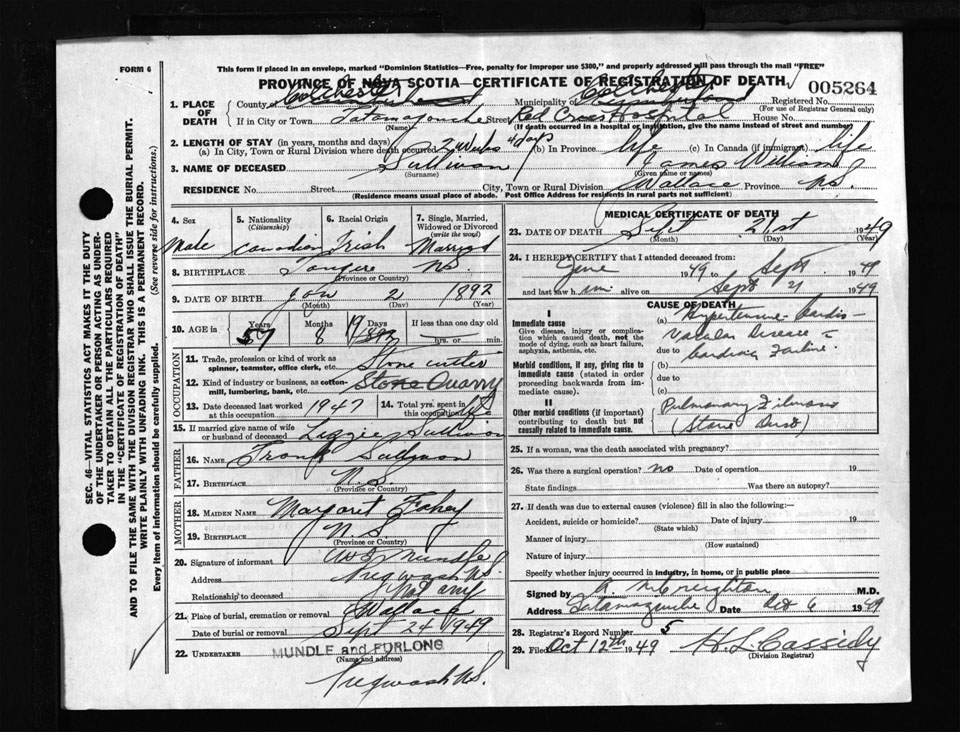 FORM 6
This form if placed in an envelope, marked "Dominion Statistics—Free, penalty for improper use $300," and properly addressed will pass through the mail "FREE"
PROVINCE OF NOVA SCOTIA—CERTIFICATE OF REGISTRATION OF DEATH.
005264
1. PLACE OF DEATH
County of Colchester Municipality of Colchester Registered No.
(For use of Registrar General only)
If in City or Town Tatamagouche Street Red Cross Hospital House No.
(Name) (If death occurred in a hospital or institution, give the name instead of street and number)
2. LENGTH OF STAY (in years, months and days)
(a) In City, Town or Rural Division where death occurred 2 wks 4 days (b) In Province life (c) In Canada (if immigrant) life
3. NAME OF DECEASED Sullivan James William
(Surname) (Given name or names)
RESIDENCE No. Street City, Town or Rural Division Wallace Province N.S.
(Residence means usual place of abode. Post Office Address for residents in rural parts not sufficient)
4. Sex
Male
5. Nationality
(Citizenship)
Canadian
6. Racial Origin
Irish
7. Single, Married, Widowed or Divorced
(write the word)
Married
8. BIRTHPLACE N.S.
(Province or Country)
9. DATE OF BIRTH Jan 2 1892
(Month) (Day) (Year)
10. AGE in
Years Months Days If less than one day
57 8 19 hrs. or min.
OCCUPATION
11. Trade, profession or kind of work as spinner, teamster, office clerk, etc. Stone cutter
12. Kind of industry or business, as cotton-mill, lumbering, bank, etc. Stone Quarry
13. Date deceased last worked at this occupation 1947
14. Total yrs. spent in this occupation life
15. If married give name of wife or husband of deceased Lizzie Sullivan
FATHER
16. NAME Frank Sullivan
17. BIRTHPLACE N.S.
(Province or Country)
MOTHER
18. MAIDEN NAME Margaret Fahey
19. BIRTHPLACE N.S.
(Province or Country)
20. Signature of informant Mundle
Address Pugwash N.S.
Relationship to deceased Not any
21. Place of burial, cremation or removal Wallace
Date of burial or removal Sept 24 1949
22. UNDERTAKER MUNDLE and FURLONG
(Name and address)
Pugwash N.S.
MEDICAL CERTIFICATE OF DEATH
23. DATE OF DEATH Sept 21st 1949
(Month) (Day) (Year)
24. I HEREBY CERTIFY that I attended deceased from:
June 1949 to Sept 1949
and last saw him alive on Sept 21 1949
CAUSE OF DEATH
I
Immediate cause
Give disease, injury or complication which caused death, not the mode of dying, such as heart failure, asphyxia, asthenia, etc.
(a) Hypertensive Cardio-
Vascular Disease
due to cardiac Failure
Morbid conditions, if any, giving rise to immediate cause (stated in order proceeding backwards from immediate cause).
(b)
due to
(c)
II
Other morbid conditions (if important) contributing to death but not causally related to immediate cause.
Pulmonary Fibrosis
(Stone Dust)
25. If a woman, was the death associated with pregnancy?
26. Was there a surgical operation? no Date of operation 19
State findings Was there an autopsy?
27. If death was due to external causes (violence) fill in also the following:—
Accident, suicide or homicide? Date of injury 19
(State which)
Manner of injury
(How sustained)
Nature of injury
Specify whether injury occurred in industry, in home, or in public place
Signed by Creighton M.D.
Address Tatamagouche Date Oct 6 1949
28. Registrar's Record Number 5
29. Filed Oct 12th 1949 H. L. Cassidy
(Division Registrar)
SEC. 46—VITAL STATISTICS ACT MAKES IT THE DUTY
OF THE UNDERTAKER OR PERSON ACTING AS UNDER-
TAKER TO OBTAIN ALL THE PARTICULARS REQUIRED
IN THE "CERTIFICATE OF REGISTRATION OF DEATH"
AND TO FILE THE SAME WITH THE DIVISION REGISTRAR WHO SHALL ISSUE THE BURIAL PERMIT.
WRITE PLAINLY WITH UNFADING INK. THIS IS A PERMANENT RECORD.
Every item of information should be carefully supplied. (See reverse side for instructions.)